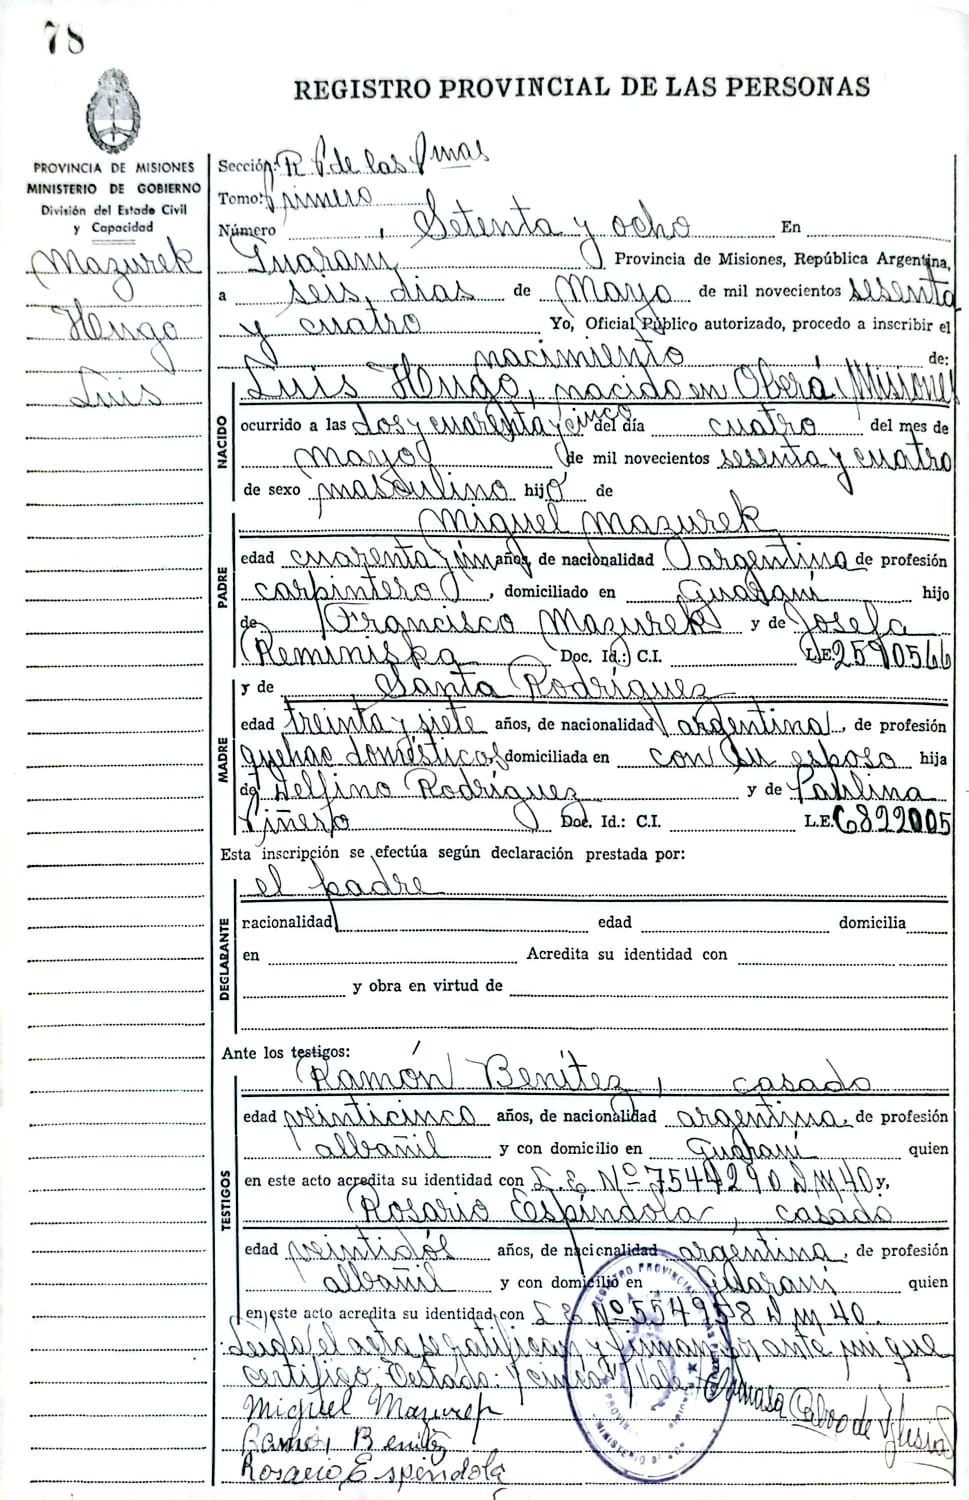 78
REGISTRO PROVINCIAL DE LAS PERSONAS
PROVINCIA DE MISIONES
MINISTERIO DE GOBIERNO
División del Estado Civil
y Capacidad
Mazurek
Hugo
Luis
Sección: R P de las Pnas
Tomo: Primero
Número Setenta y ocho En
Guaraní Provincia de Misiones, República Argentina,
a seis días de Mayo de mil novecientos sesenta
y cuatro Yo, Oficial Público autorizado, procedo a inscribir el
nacimiento de:
Luis Hugo, nacido en Oberá Misiones
NACIDO
ocurrido a las dos y cuarenta y cinco del día cuatro del mes de
mayo de mil novecientos sesenta y cuatro
de sexo masculino hijo de
Miguel Mazurek
PADRE
edad cuarenta y un años, de nacionalidad argentina de profesión
carpintero, domiciliado en Guaraní hijo
de Francisco Mazurek y de Josefa
Reminiska Doc. Id.: C.I. L.E. 2590566
y de Santa Rodríguez
MADRE
edad treinta y siete años, de nacionalidad argentina, de profesión
quehac domésticos domiciliada en con su esposo hija
de Delfino Rodríguez y de Paulina
Piñero Doc. Id.: C.I. L.E. 6822005
Esta inscripción se efectúa según declaración prestada por:
el padre
DECLARANTE
nacionalidad edad domicilia
en Acredita su identidad con
y obra en virtud de
Ante los testigos:
Ramón Benítez, casado
TESTIGOS
edad veinticinco años, de nacionalidad argentina, de profesión
albañil y con domicilio en Guaraní quien
en este acto acredita su identidad con L. E. Nº 7544290 D M 40 y,
Rosario Espíndola, casado
edad veintidós años, de nacionalidad argentina, de profesión
albañil y con domicilio en Guaraní quien
en este acto acredita su identidad con L E Nº 554958 D M 40.
Leída el acta se ratifican y firman por ante mi que
certifico. Testado: y cinco Vale
Tomasa Calvo de Iglesias
Miguel Mazurek
Ramón Benítez
Rosario Espíndola
REGISTRO PROVINCIAL
MINISTERIO DE